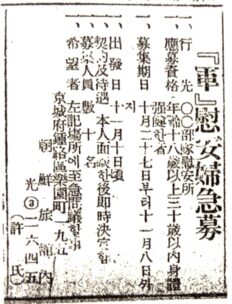 『軍』慰安婦急募
一、行先 〇〇部隊慰安所
一、應募資格 年齡十八歲以上三十歲以內身體强健한者
一、募集期日 十月二十七日부터十一月八日外지
一、出發日 十一月十日頃
一、契約及待遇 本人面談한後即時決定함
一、募集人員 數十名
一、希望者 左記場所에至急問議할事
京城府鍾路區樂園町一九五
朝鮮旅館內
光③二六四五
(許氏)